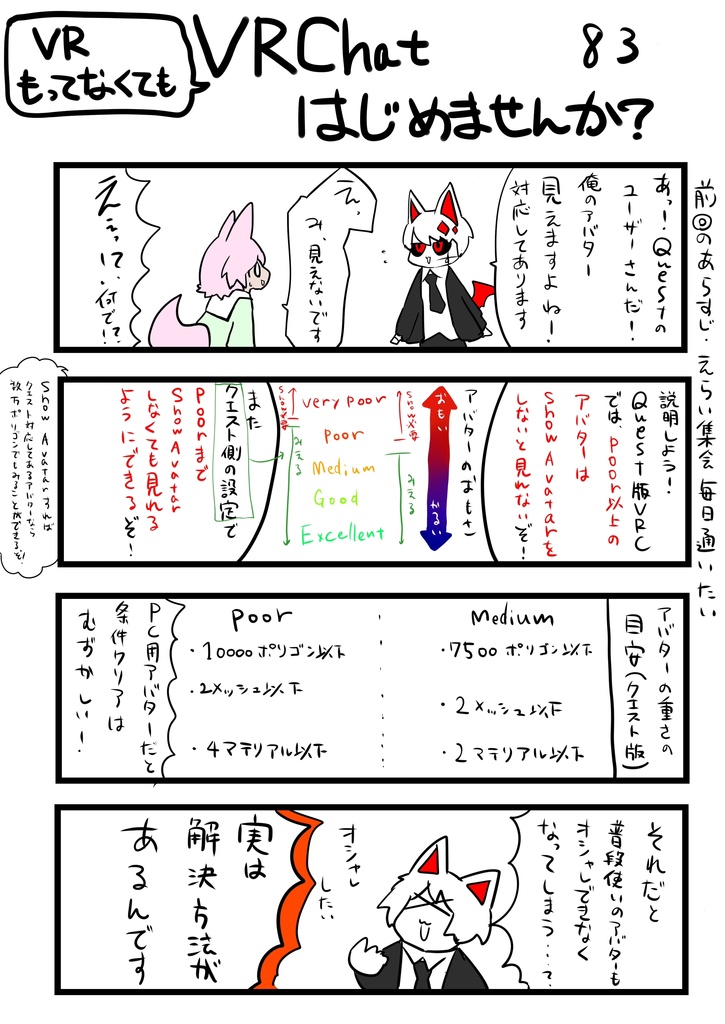 VR
もってなくても
VRChat
はじめませんか?
83
前回のあらすじ.えらい集会毎日通いたい
あっ!Questの
ユーザーさんだ!
俺のアバター
見えますよね!
対応してあります
え、
み、見えないです
えぇって、何で!?
説明しよう!
Quest版VRC
では、poor以上の
アバターは
Show Avatarを
しないと見れないぞ!
アバターのおもさ
おもい
かるい
very poor
poor
Medium
Good
Excellent
Show必要
みえる
Show必要
みえる
また
クエスト側の設定で
poorまで
Show Avatar
しなくても見れる
ようにできるぞ!
Show Avatarすれば
クエスト対応してあるアバターなら
数万ポリゴンでもみることができるぞ!
アバターの重さの
目安(クエスト版)
Medium
・7500ポリゴン以下
・2メッシュ以下
・2マテリアル以下
poor
・10000ポリゴン以下
・2メッシュ以下
・4マテリアル以下
PC用アバターだと
条件クリアは
むずかしい!
それだと
普段使いのアバターも
オシャレできなく
なってしまう…?
オシャレ
したい
実は
解決方法が
あるんです